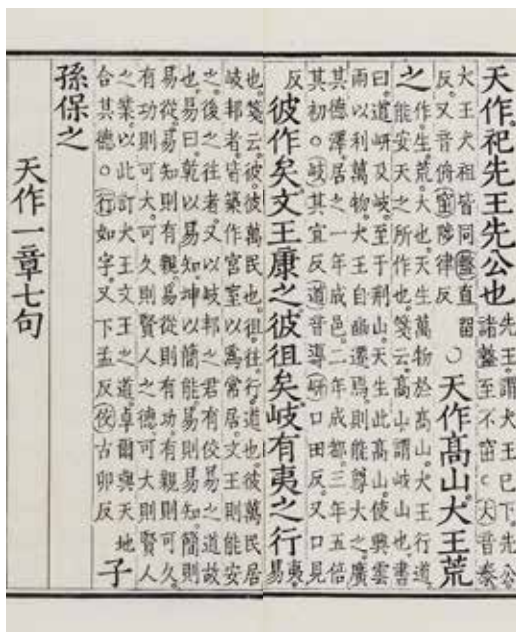 天作。祀先王先公也
先王。謂大王已下。先公
諸盩至不窋。○大音泰
大王大祖皆同。盩直留
反。又音侜。窋陟律反
○天作高山。大王荒
之
作。生。荒。大也。天生萬物於高山。大王行道。
能安天之所作也。箋云。高山。謂岐山也。書
曰。道岍及岐。至于荆山。天生此高山。使興雲
雨以利萬物。大王自豳遷焉。則能尊大之。廣
其德澤。居之一年成邑。二年成都。三年五倍
其初。○岐其宜反。道音導。岍口田反。又口見
反
彼作矣。文王康之。彼徂矣。岐有夷之行
夷。
易
也。箋云。彼。彼萬民也。徂。往。行。道也。彼萬民居
岐邦者。皆築作宮室。以爲常居。文王則能安
之。後之往者。又以岐邦之君有佼易之道故
也。易曰。乾以易知。坤以簡能。易則易知。簡則
易從。易知則有親。易從則有功。有親則可久。
有功則可大。可久則賢人之德。可大則賢人
之業。以此訂大王文王之道。卓爾與天地
合其德。○行如字。又下孟反。佼古卯反
子
孫保之
天作一章七句